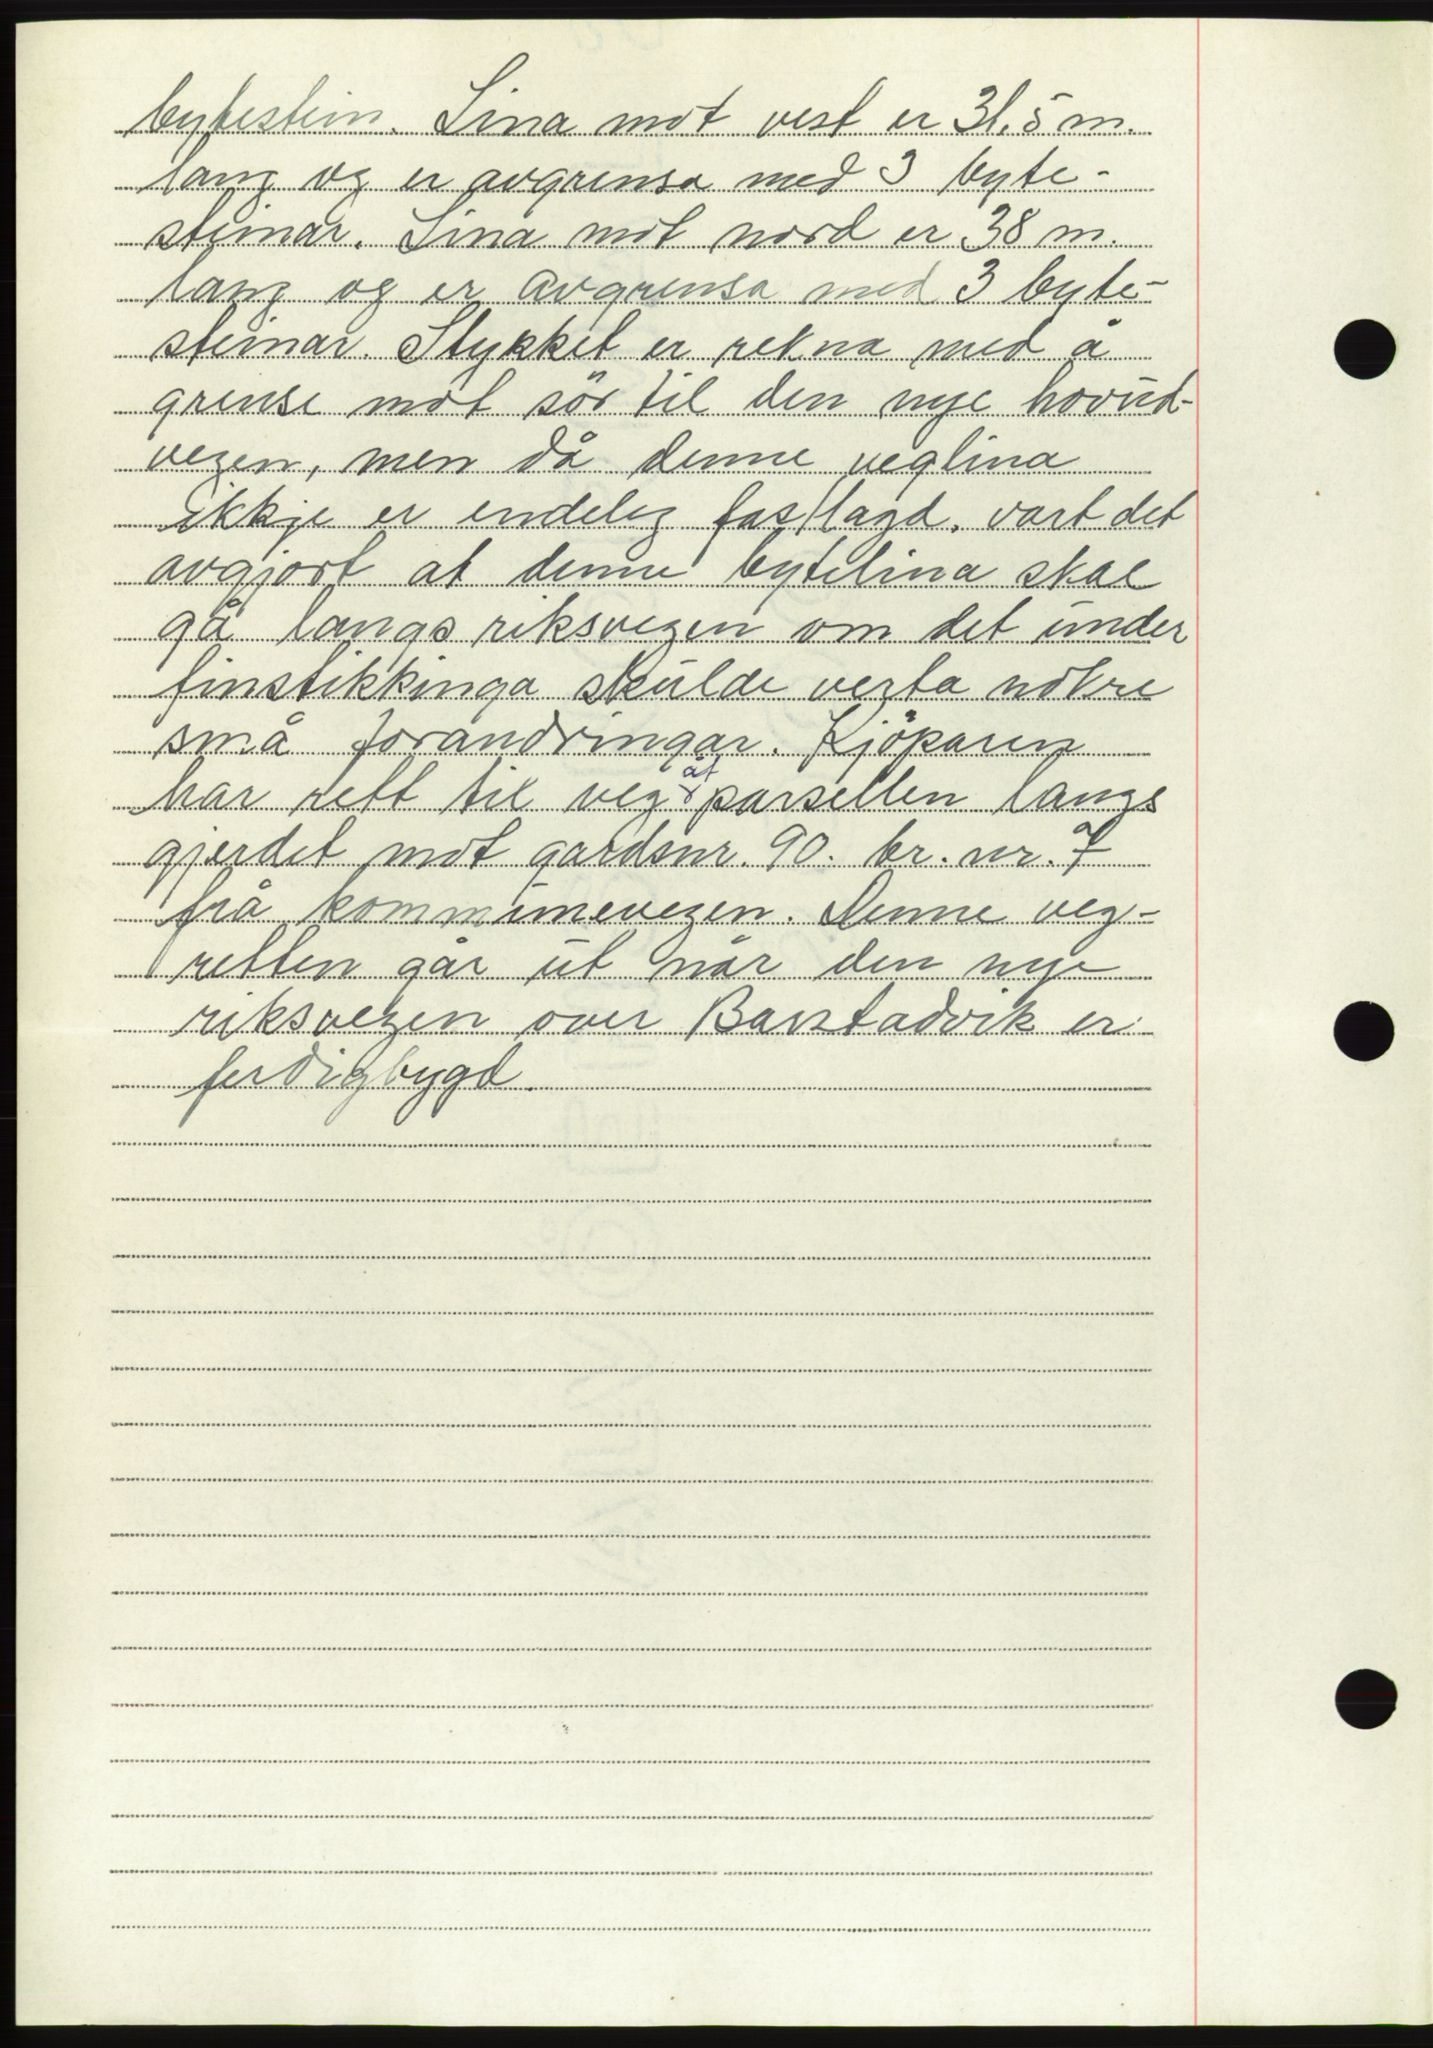 bytestein. Lina mot vest er 31,5 m.
lang og er avgrensa med 3 byte-
steinar. Lina mot nord er 38 m.
lang og er avgrensa med 3 byte-
steinar. Stykket er rekna med å
grense mot sör til den nye hovud-
vegen, men då denne veglina
ikkje er endeleg fastlagd, vart det
avgjort at denne bytelina skal
gå langs riksvegen om det under
finstikkinga skulde verta nokre
små forandringar. Kjöparen
har rett til veg åt parsellen langs
gjerdet mot gardsnr. 90. br. nr. 7
frå kommunevegen. Denne veg-
retten går ut når den nye
riksvegen over Barstadvik er
ferdigbygd.